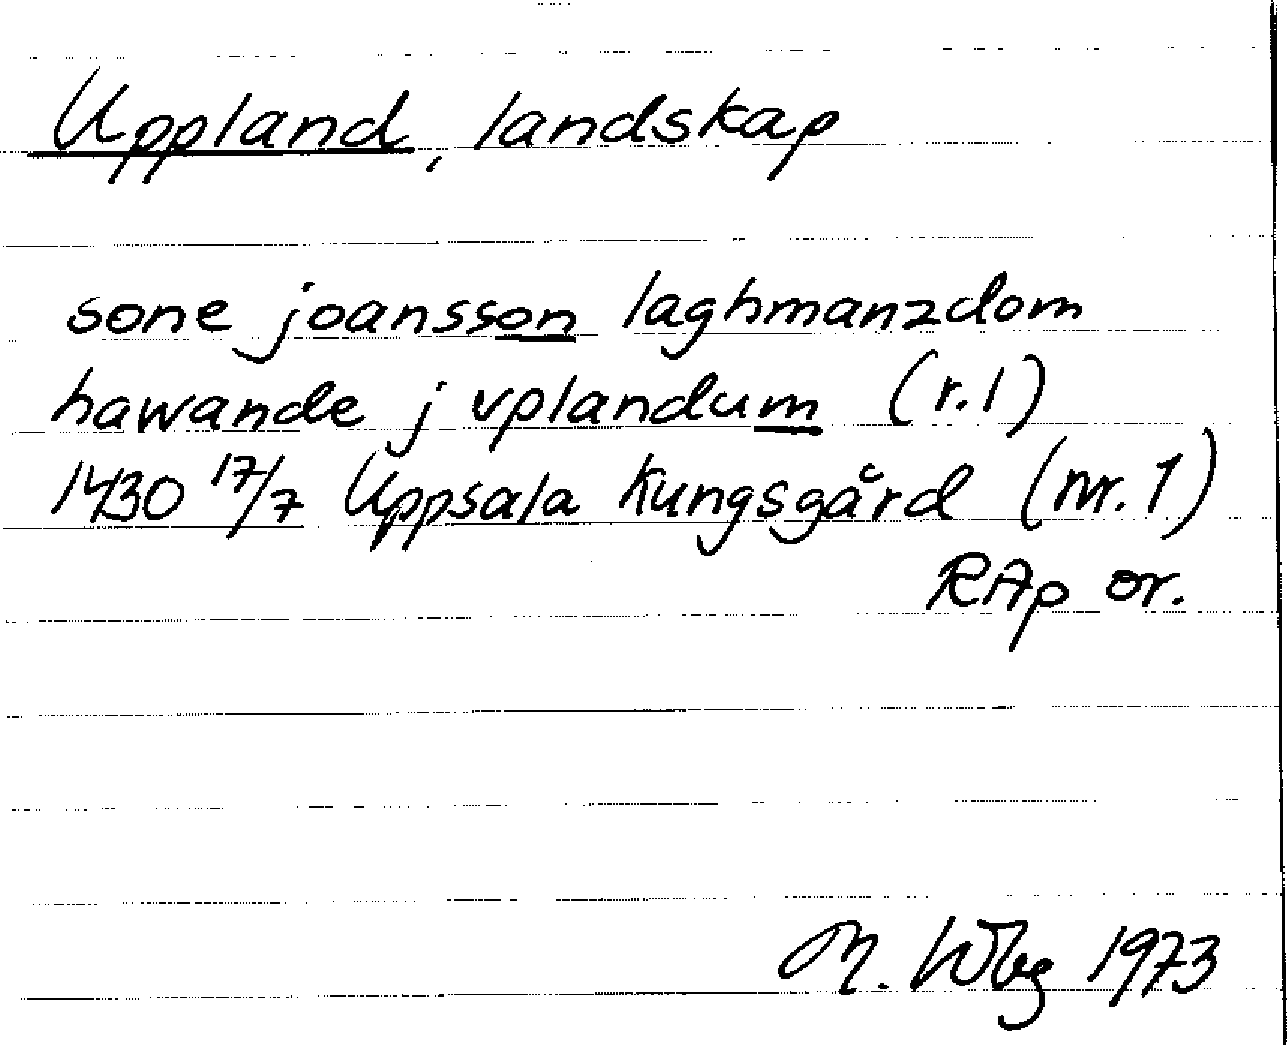 Uppland, landskap
sone joansson laghmanzdom
hawande j vplandum (r.1)
1430 17/7 Uppsala Kungsgård (nr. 1)
RAp or.
M. Wbg 1973